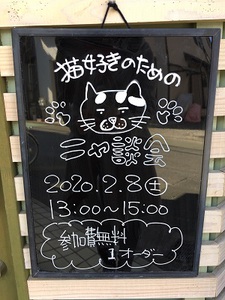 猫好きのための
ニャ談会
2020.2.8(土)
13:00～15:00
参加費無料
1オーダー